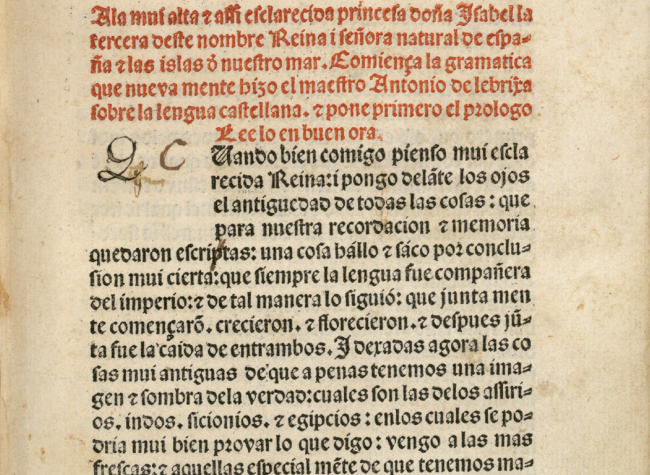 Ala mui alta ⁊ assi esclarecida princesa doña Isabel la
tercera deste nombre Reina i señora natural de espa=
ña ⁊ las islas ð nuestro mar. Comiença la gramatica
que nueva mente hizo el maestro Antonio de lebrixa
sobre la lengua castellana. ⁊ pone primero el prologo
Lee lo en buen ora.
Q C Uando bien comigo pienso mui escla
recida Reina: i pongo delãte los ojos
el antiguedad de todas las cosas: que
para nuestra recordacion ⁊ memoria
quedaron escriptas: una cosa hállo ⁊ sáco por conclu=
sion mui cierta: que siempre la lengua fue compañera
del imperio: ⁊ de tal manera lo siguió: que junta men
te començarõ. crecieron. ⁊ florecieron. ⁊ despues jũ=
ta fue la caida de entrambos. I dexadas agora las co
sas mui antiguas de que a penas tenemos una ima=
gen ⁊ sombra dela verdad: cuales son las delos assiri=
os. indos. sicionios. ⁊ egipcios: enlos cuales se po=
dria mui bien provar lo que digo: vengo a las mas
frescas: ⁊ aquellas especial mẽte de que tenemos ma=